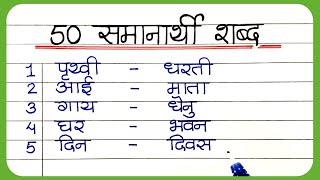 50 समानार्थी शब्द
1 पृथ्वी - धरती
2 आई - माता
3 गाय - धेनु
4 घर - भवन
5 दिन - दिवस